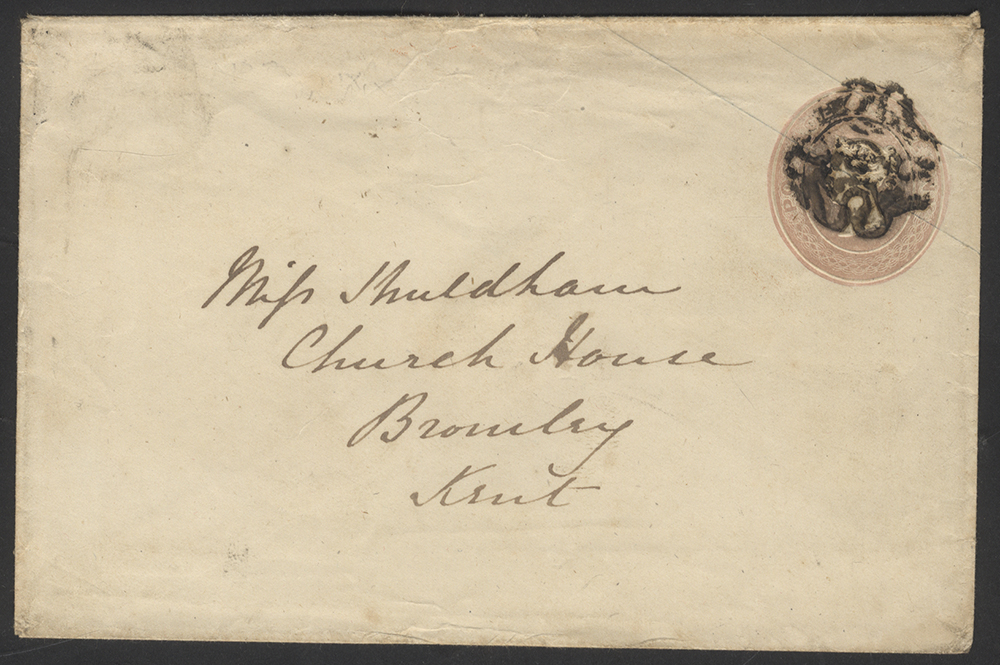 Miss Shuldham
Church House
Bromley
Kent